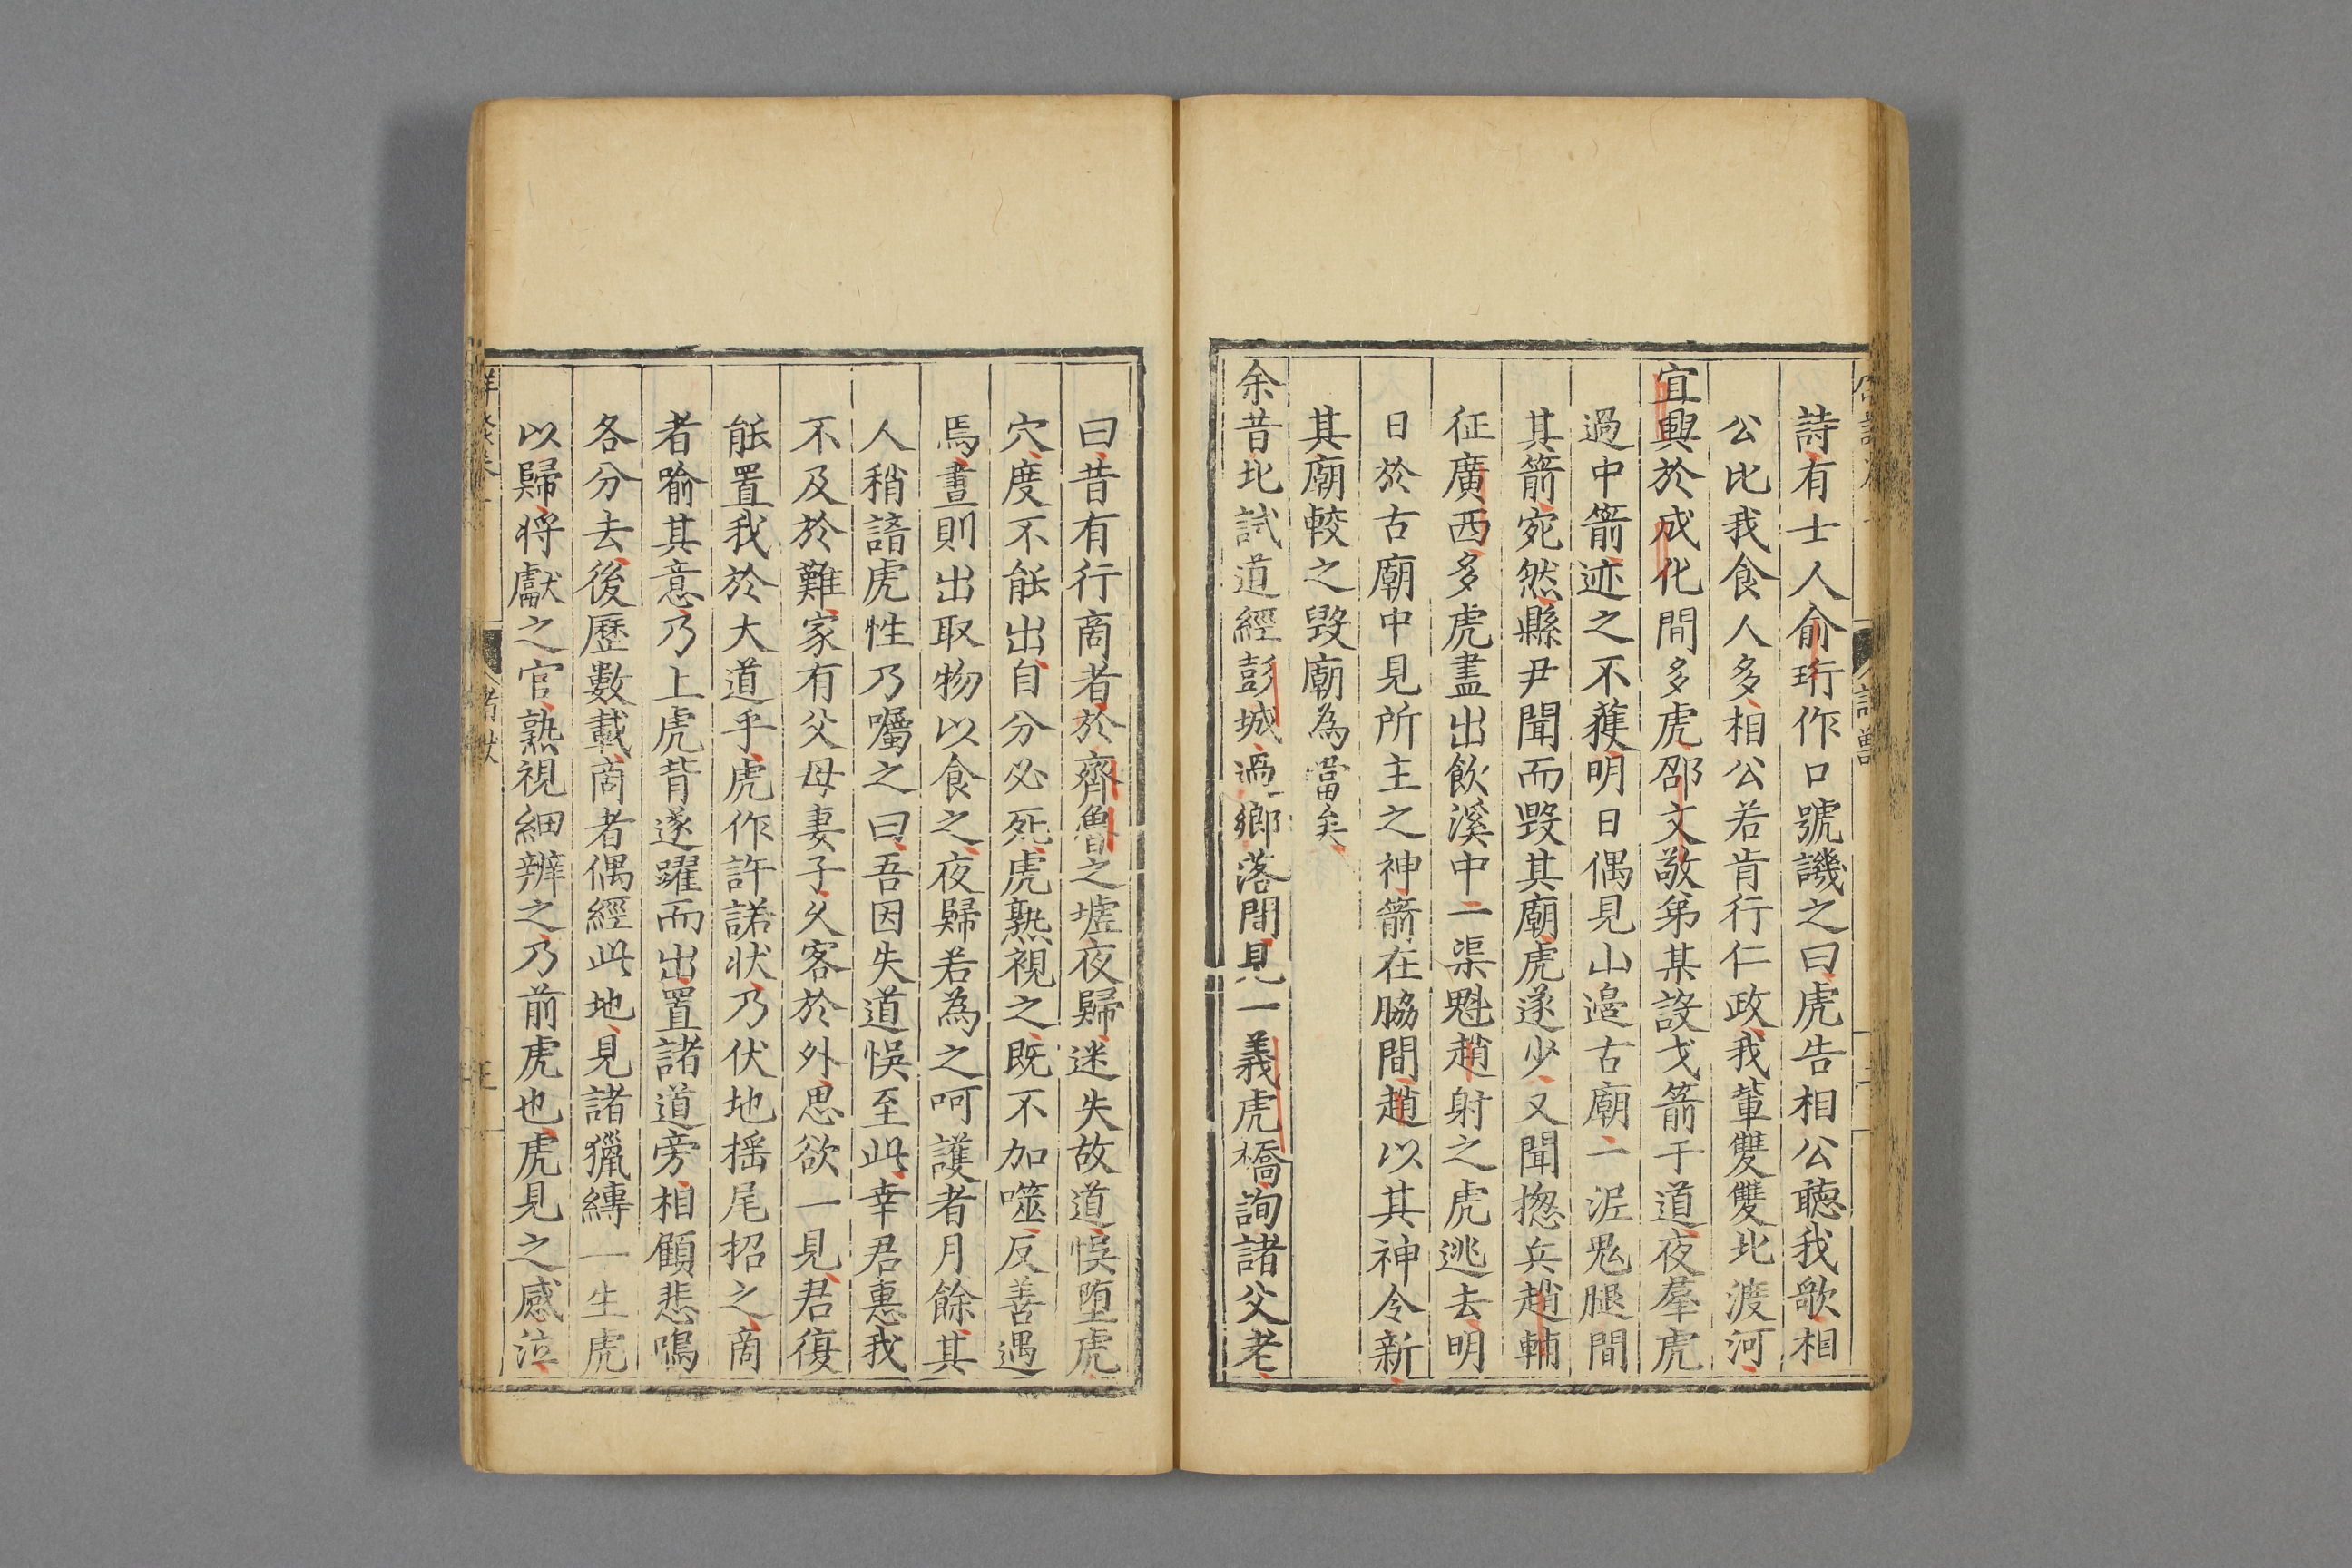 詩有士人俞珩作口號譏之曰虎告相公聽我歌相
公比我食人多相公若肯行仁政我輩雙雙北渡河
宜興於成化間多虎邵文敬弟某設弋箭于道夜羣虎
過中箭迹之不獲明日偶見山邉古廟二泥鬼腿間
其箭宛然縣尹聞而毀其廟虎遂少又聞揔兵趙輔
征廣西多虎晝出飲溪中一渠魁趙射之虎逃去明
日於古廟中見所主之神箭在脇間趙以其神令新
其廟較之毀廟為當矣
余昔北試道經彭城過一鄉落間見一義虎橋詢諸父老
曰昔有行商者於齊魯之墟夜歸迷失故道悞堕虎
穴度不能出自分必死虎熟視之既不加噬反善遇
焉晝則出取物以食之夜歸若為之呵護者月餘其
人稍諳虎性乃囑之曰吾因失道悞至此幸君惠我
不及於難家有父母妻子久客於外思欲一見君復
能置我於大道乎虎作許諾状乃伏地揺尾招之商
者喻其意乃上虎背遂躍而出置諸道旁相顧悲鳴
各分去後歷數載商者偶經此地見諸獵縛一生虎
以歸将獻之官熟視細辨之乃前虎也虎見之感泣